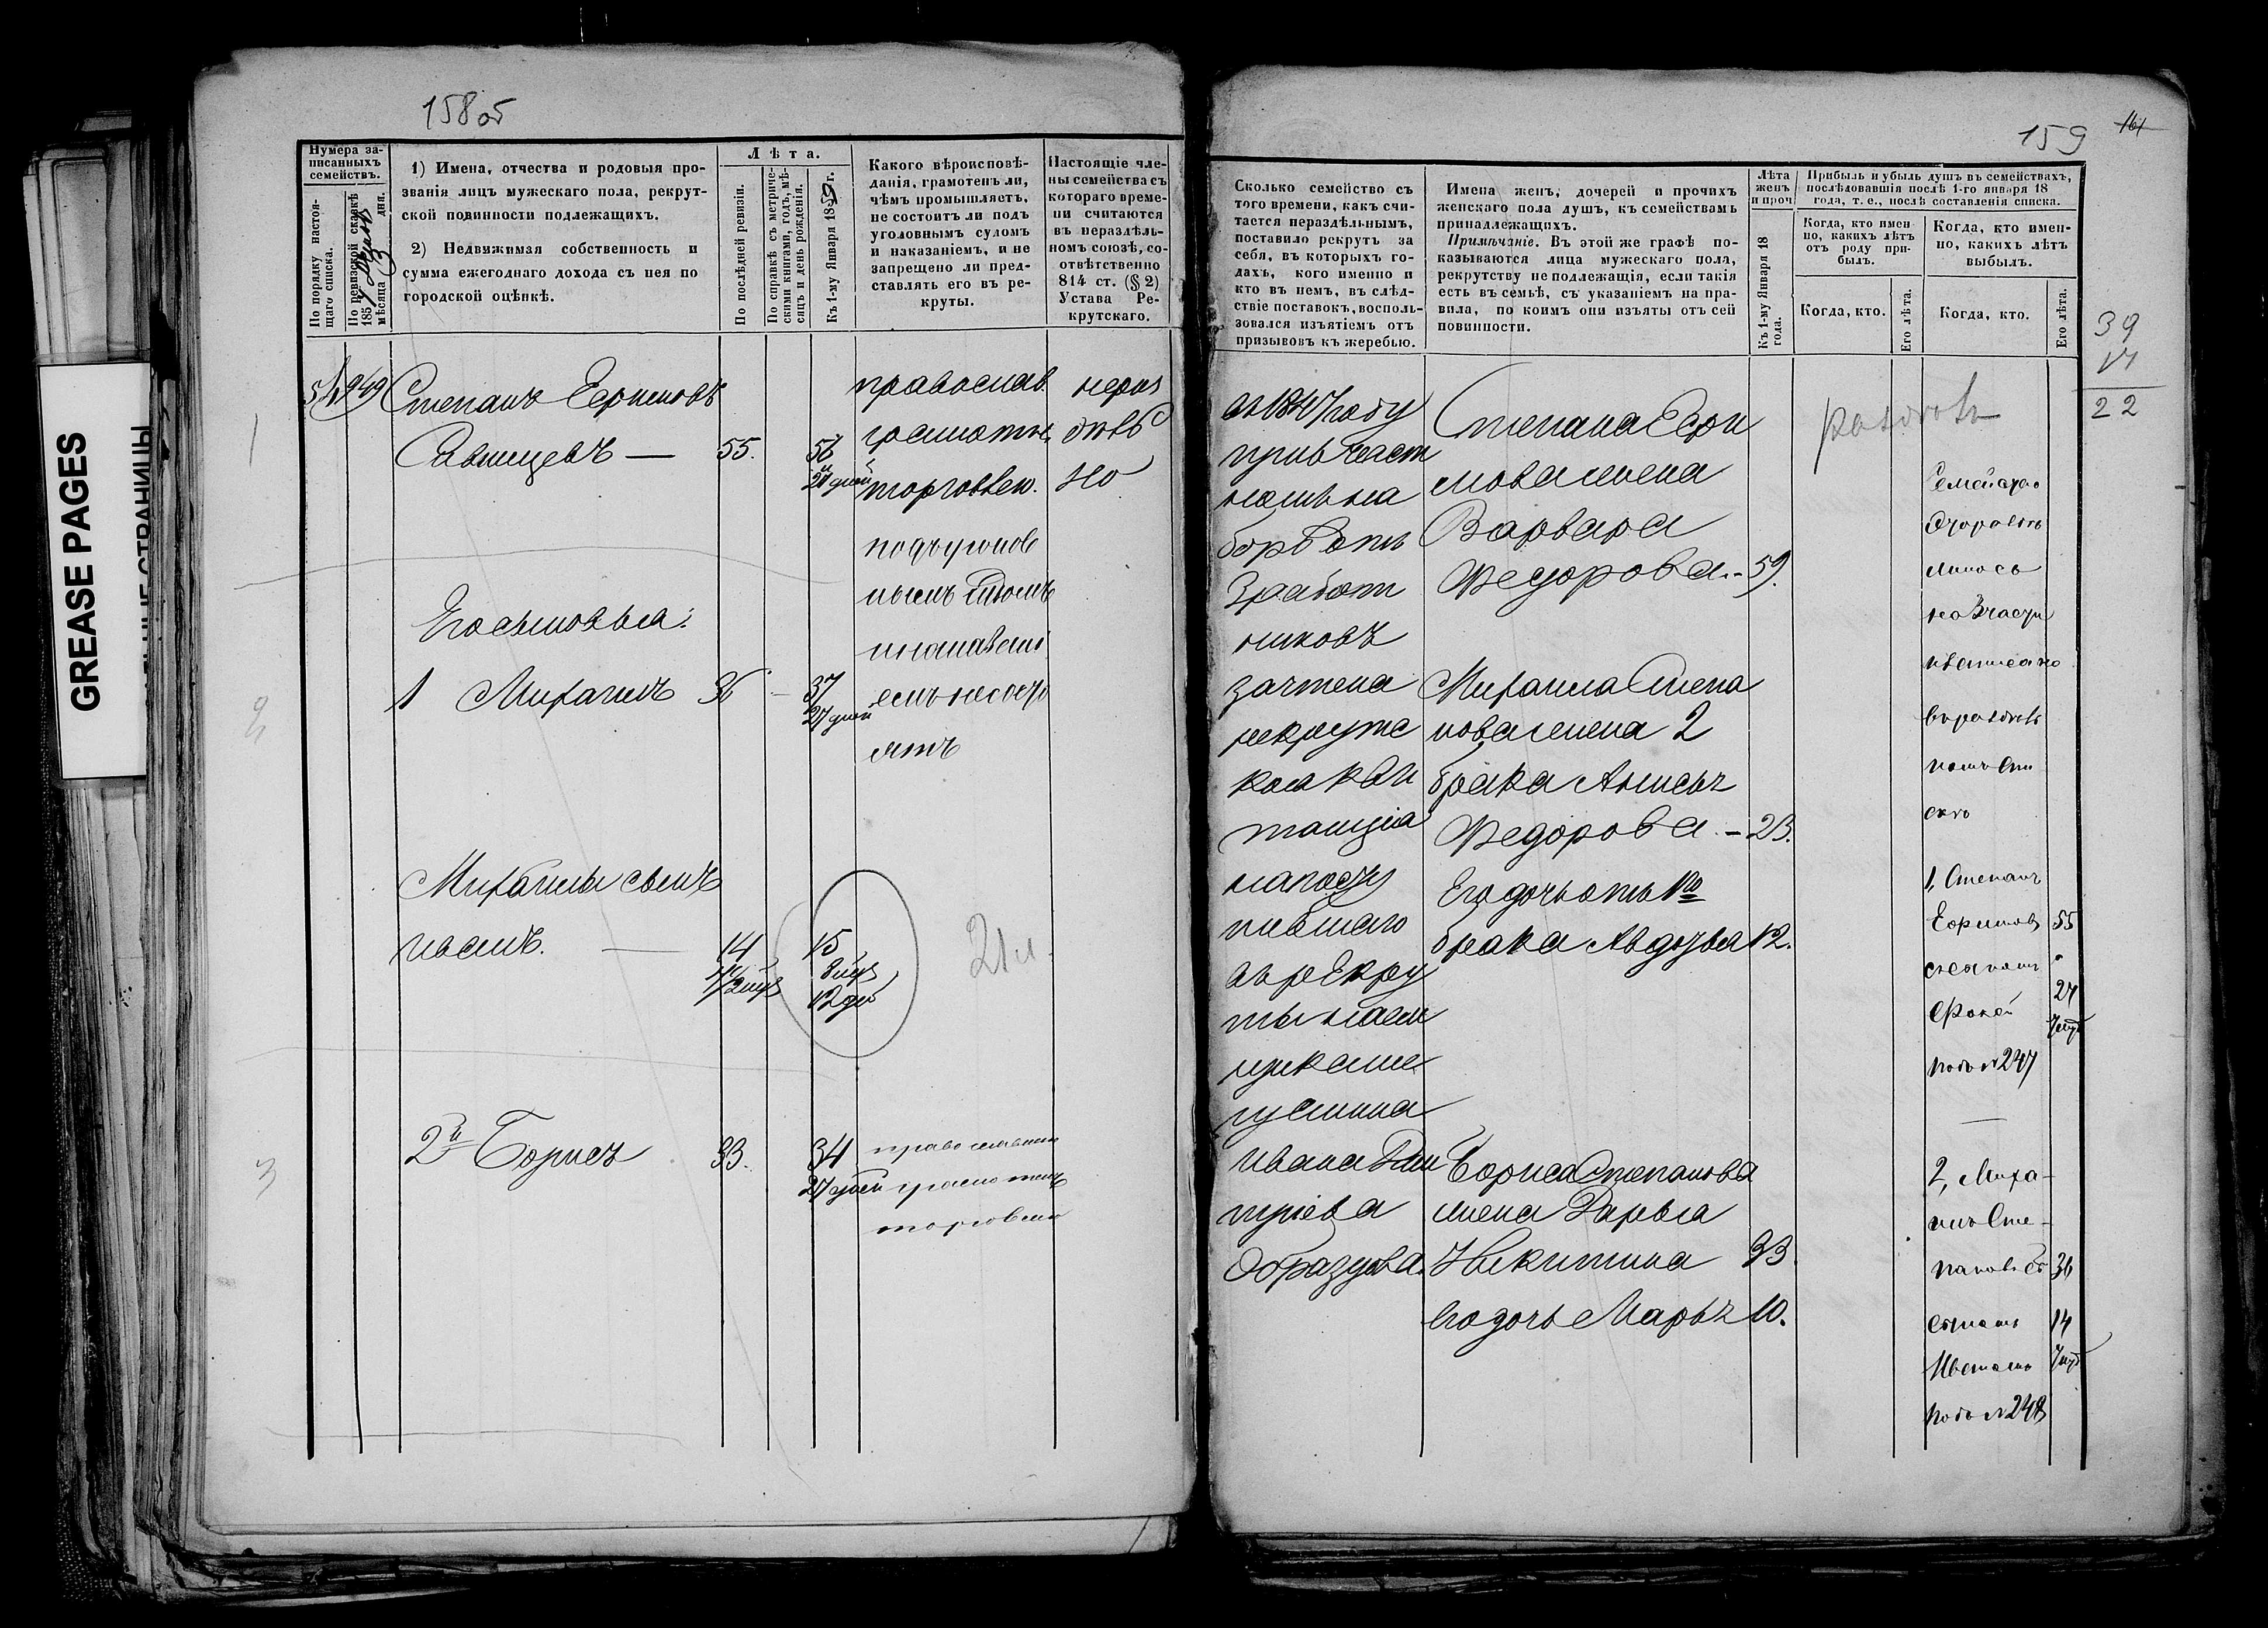 158 об
Нумера за-
писанныхъ
семействъ.
По порядку настоя-
щаго списка.
По ревизской сказкѣ
185
мѣсяца 3 дня.
1) Имена, отчества и родовыя про-
званія лицъ мужескаго пола, рекрут-
ской повинности подлежащихъ.
2) Недвижимая собственность и
сумма ежегоднаго дохода съ нея по
городской оцѣнкѣ.
Лѣта.
По послѣдней ревизіи.
По справкѣ съ метриче-
скими книгами, годъ, мѣ-
сяцъ и день рожденія.
Къ 1-му Января 1859 г.
Какого вѣроисповѣ-
данія, грамотенъ ли,
чѣмъ промышляетъ,
не состоитъ ли подъ
уголовнымъ судомъ
и наказаніемъ, и не
запрещено ли пред-
ставлять его въ ре-
круты.
Настоящіе чле-
ны семейства съ
котораго време-
ни считаются
въ нераздѣль-
номъ союзѣ, со-
отвѣтственно
814 ст. (§ 2)
Устава Ре-
крутскаго.
949
Степанъ Ефимовъ
55.
27 дней
православ.
грамотн.
торговлею.
подъ уголов
нымъ судомъ
и наказані
емъ не состо
ятъ
нераз
дѣль
но
1
Его сыновья:
1 Михаилъ 36 37
27 дней
2
Михаилы сынъ
Иванъ. 14 15
8 мѣс
12 дн
21 л.
2й Борисъ 33. 34
27 дней
православн
грамотенъ
торговлею
3
159
161
Сколько семейство съ
того времени, какъ счи-
тается нераздѣльнымъ,
поставило рекрутъ за
себя, въ которыхъ го-
дахъ, кого именно и
кто въ немъ, въ слѣд-
ствіе поставокъ, восполь-
зовался изъятіемъ отъ
призывовъ къ жеребью.
Имена женъ, дочерей и прочихъ
женскаго пола душъ, къ семействамъ
принадлежащихъ.
Примѣчаніе. Въ этой же графѣ по-
казываются лица мужескаго пола,
рекрутству не подлежащія, если такія
есть въ семьѣ, съ указаніемъ на пра-
вила, по коимъ они изъяты отъ сей
повинности.
Лѣта
женъ
и проч.
Къ 1-му Января 18
года.
Прибыль и убыль душъ въ семействахъ,
послѣдовавшія послѣ 1-го января 18
года, т. е., послѣ составленія списка.
Когда, кто имен-
но, какихъ лѣтъ
отъ роду при-
былъ.
Когда, кто имен-
но, какихъ лѣтъ
выбылъ.
Когда, кто.
Его лѣта.
Когда, кто.
Его лѣта.
39
17
22
въ 1847 году
при част
номъ на
борѣ отъ
3 работ
никовъ
зачтена
рекрутс
кая кви
танція
на посту
пившаго
въ рекру
ты наем
щика ме
щанина
Ивана Дми
тріева
Образцова.
Степана Ефи
мова жена
Варвара
Федорова. - 59.
Михаила Степа
нова жена 2
брака Анисья
Федорова. - 23.
Его дочь отъ 1го
брака Авдотья 12.
Бориса Степанова
жена Дарья
Никитина 33.
Его дочь Марья 10.
раздѣлъ
Семейство
на 3 части
1, Степанъ
Ефимовъ 55
съ сыномъ
27
7 мѣс
подъ №247
2, Миха-
илъ Сте-
пановъ съ 36
сыномъ 14
Иваномъ 7 мѣс
подъ №248
GREASE PAGES